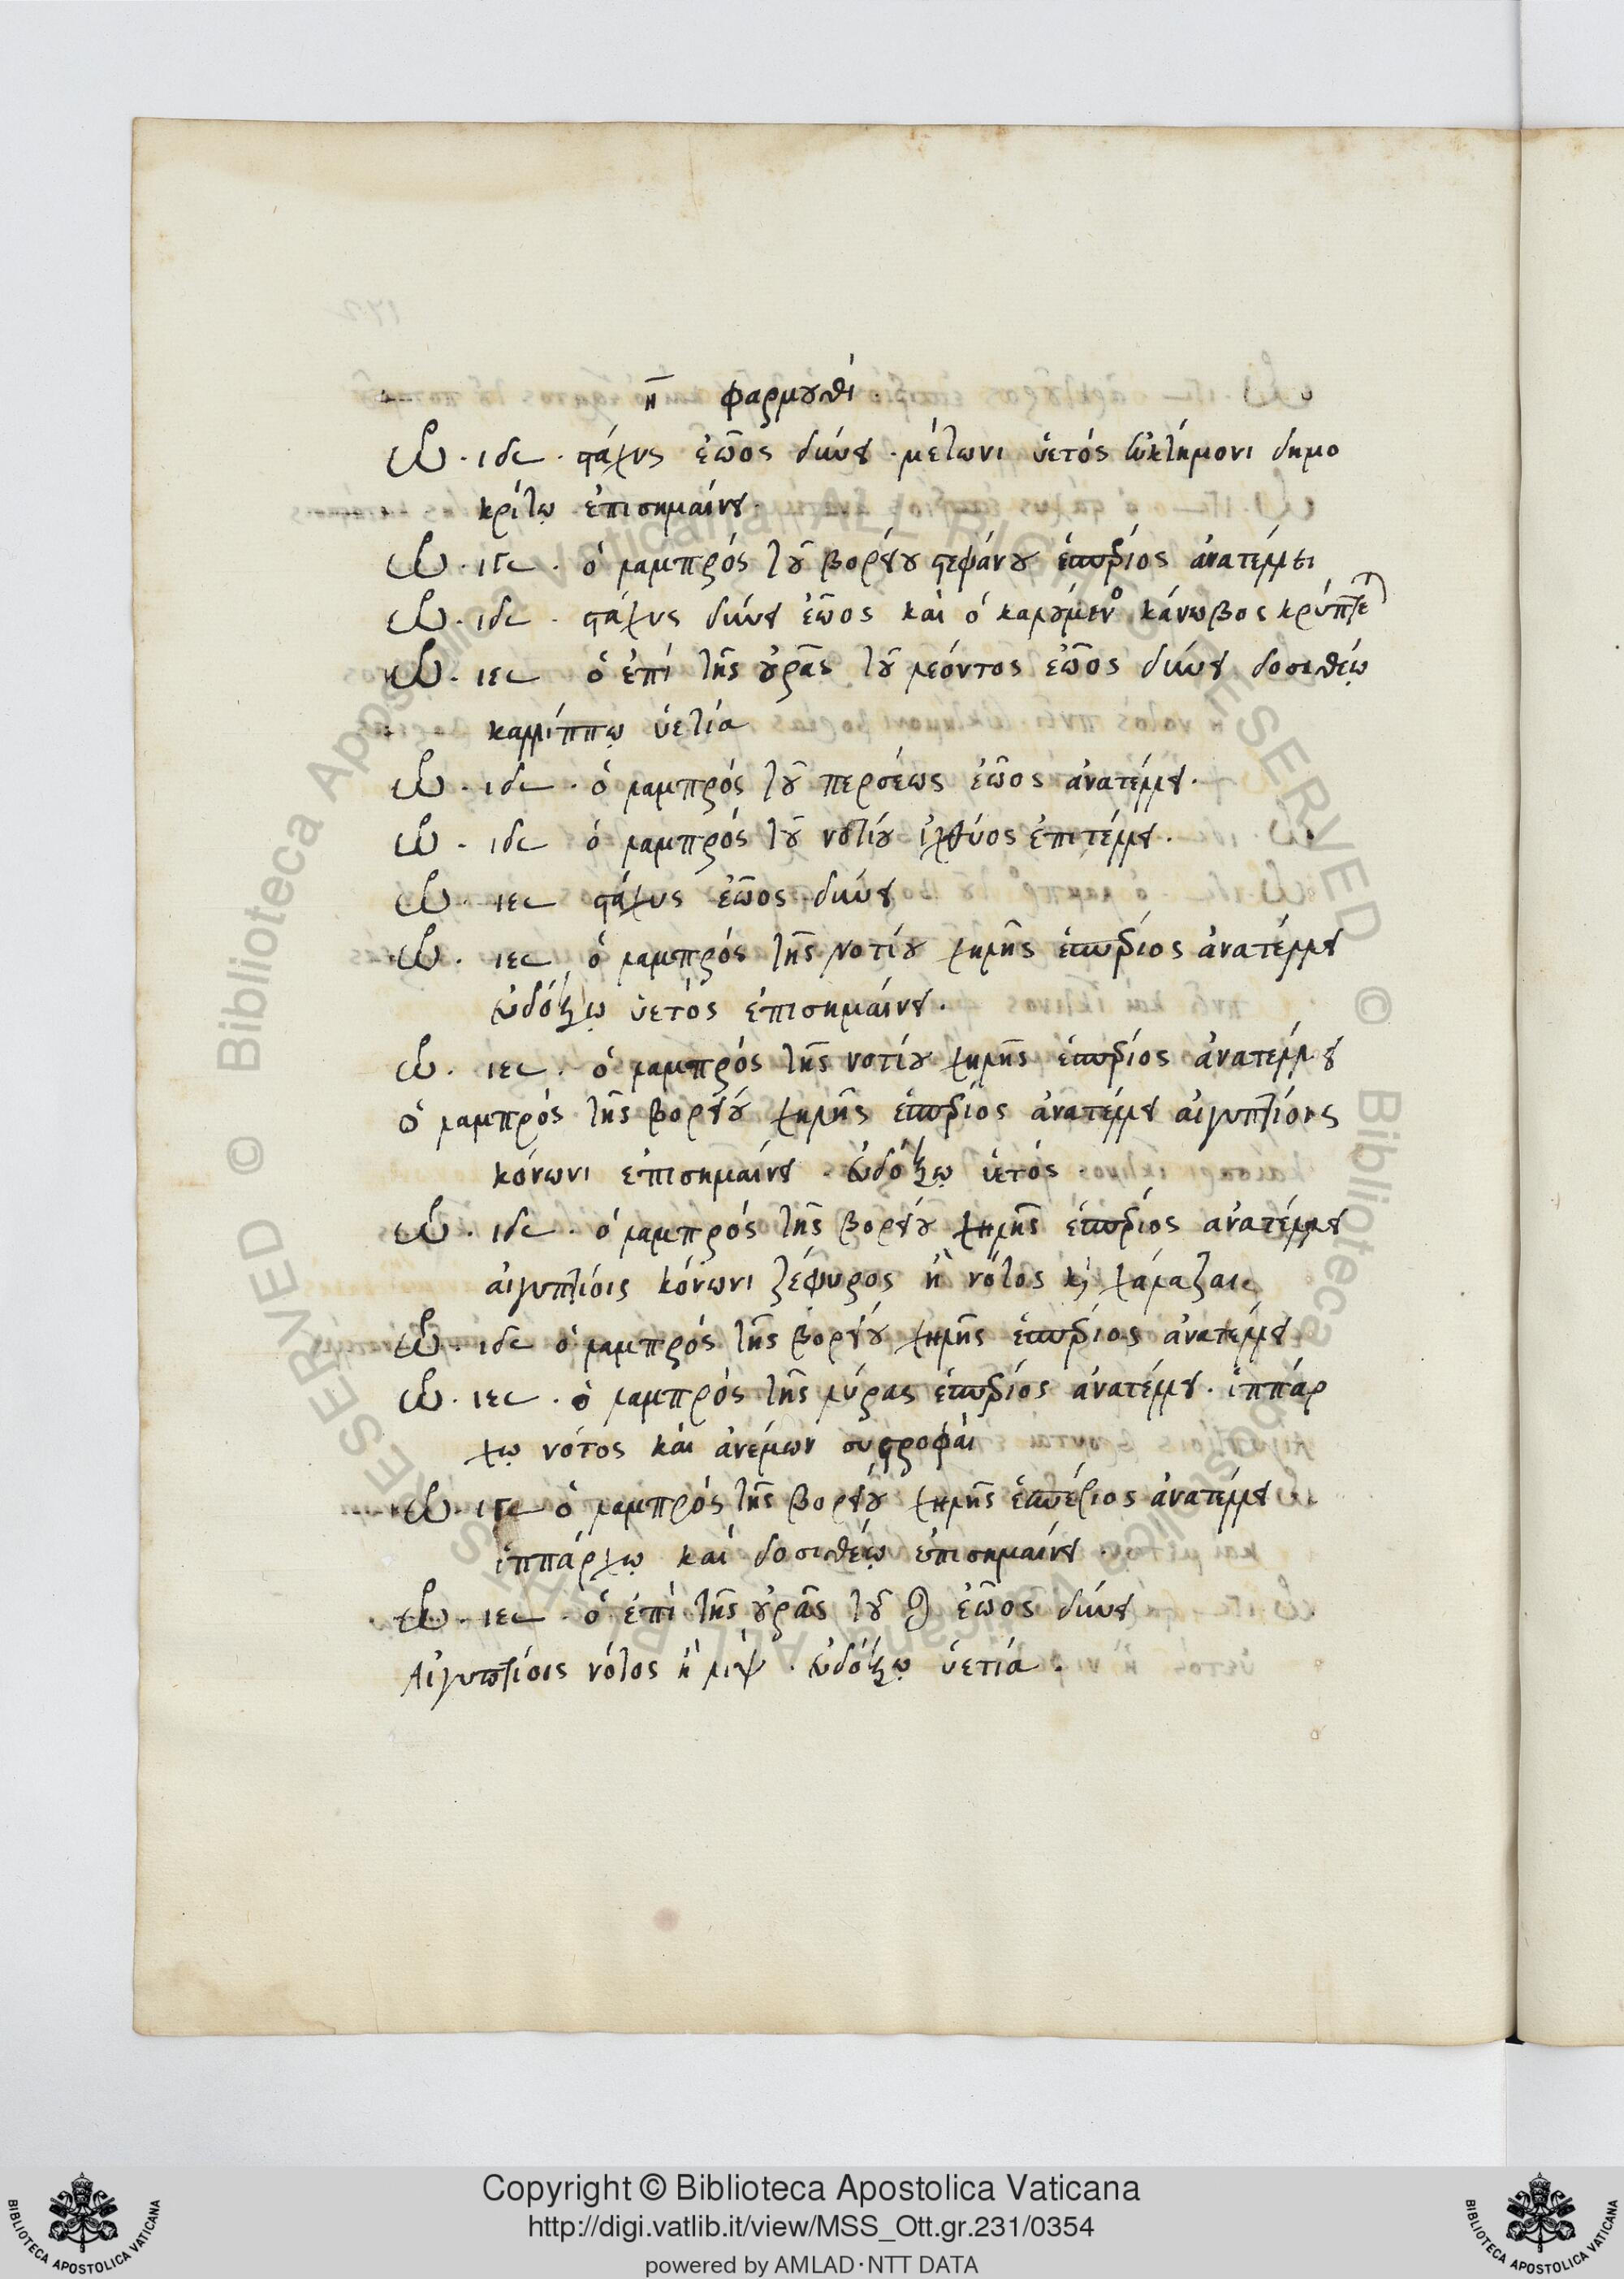 η φαρμουθί.
ὡ. ιδ𐅵. στάχυς ἑῶος δύνει. μέτωνι ὑετός εὐκτήμονι δημο
κρίτῳ ἐπισημαίνει.
ὡ. ιγ𐅵. ὁ λαμπρός τοῦ βορείου στεφάνου ἑσπέριος ἀνατέλλει
ὡ. ιδ𐅵. στάχυς δύνει ἑῶος καὶ ὁ καλούμενο κάνωβος κρύπτε
ὡ. ιε𐅵 ὁ ἐπί τῆς οὐρᾶς τοῦ λέοντος ἑῶος δύνει δοσιθέῳ
καλλίππῳ ὑετία
ὡ. ιδ𐅵. ὁ λαμπρός τοῦ περσέως ἑῶος ἀνατέλλει.
ὡ. ιδ𐅵 ὁ λαμπρός τοῦ νοτίου ἰχθύος ἐπιτέλλει.
ὡ. ιε𐅵 στάχυς ἑῶος δύνει
ὡ. ιε𐅵 ὁ λαμπρός τῆς νοτίου χηλῆς ἑσπέριος ἀνατέλλει
εὐδόξῳ ὑετός ἐπισημαίνει.
ὡ. ιε𐅵. ὁ λαμπρός τῆς νοτίου χηλῆς ἑσπέριος ἀνατέλλει
ὁ λαμπρός τῆς βορείου χηλῆς ἑσπέριος ἀνατέλλει αἰγυπτίοις
κόνωνι ἐπισημαίνει. εὐδόξῳ ὑετός.
ὡ. ιδ𐅵. ὁ λαμπρός τῆς βορείου χηλῆς ἑσπέριος ἀνατέλλει
αἰγυπτίοις κόνωνι ζέφυρος ἢ νότος κὶ χάλαζαι
ὡ. ιδ𐅵 ὁ λαμπρός τῆς βορείου χηλῆς ἑσπέριος ἀνατέλλει
ὡ. ιε𐅵. ὁ λαμπρός τῆς λύρας ἑσπέριος ἀνατέλλει. ἱππάρ
χῳ νότος καὶ ἀνέμων συστροφάι
ὡ. ιγ𐅵 ὁ λαμπρός τῆς βορείου χηλῆς ἑσπέριος ἀνατέλλει
ἱππάρχῳ καὶ δοσιθέῳ ἐπισημαίνει.
ὡ. ιε𐅵. ὁ ἐπὶ τῆς οὐρᾶς τοῦ ♌ ἑῶος δύνει
Αἰγυπτίοις νότος ἢ λιψ. εὐδόξῳ ὑετία.
Copyright © Biblioteca Apostolica Vaticana
http://digi.vatlib.it/view/MSS_Ott.gr.231/0354
powered by AMLAD·NTT DATA